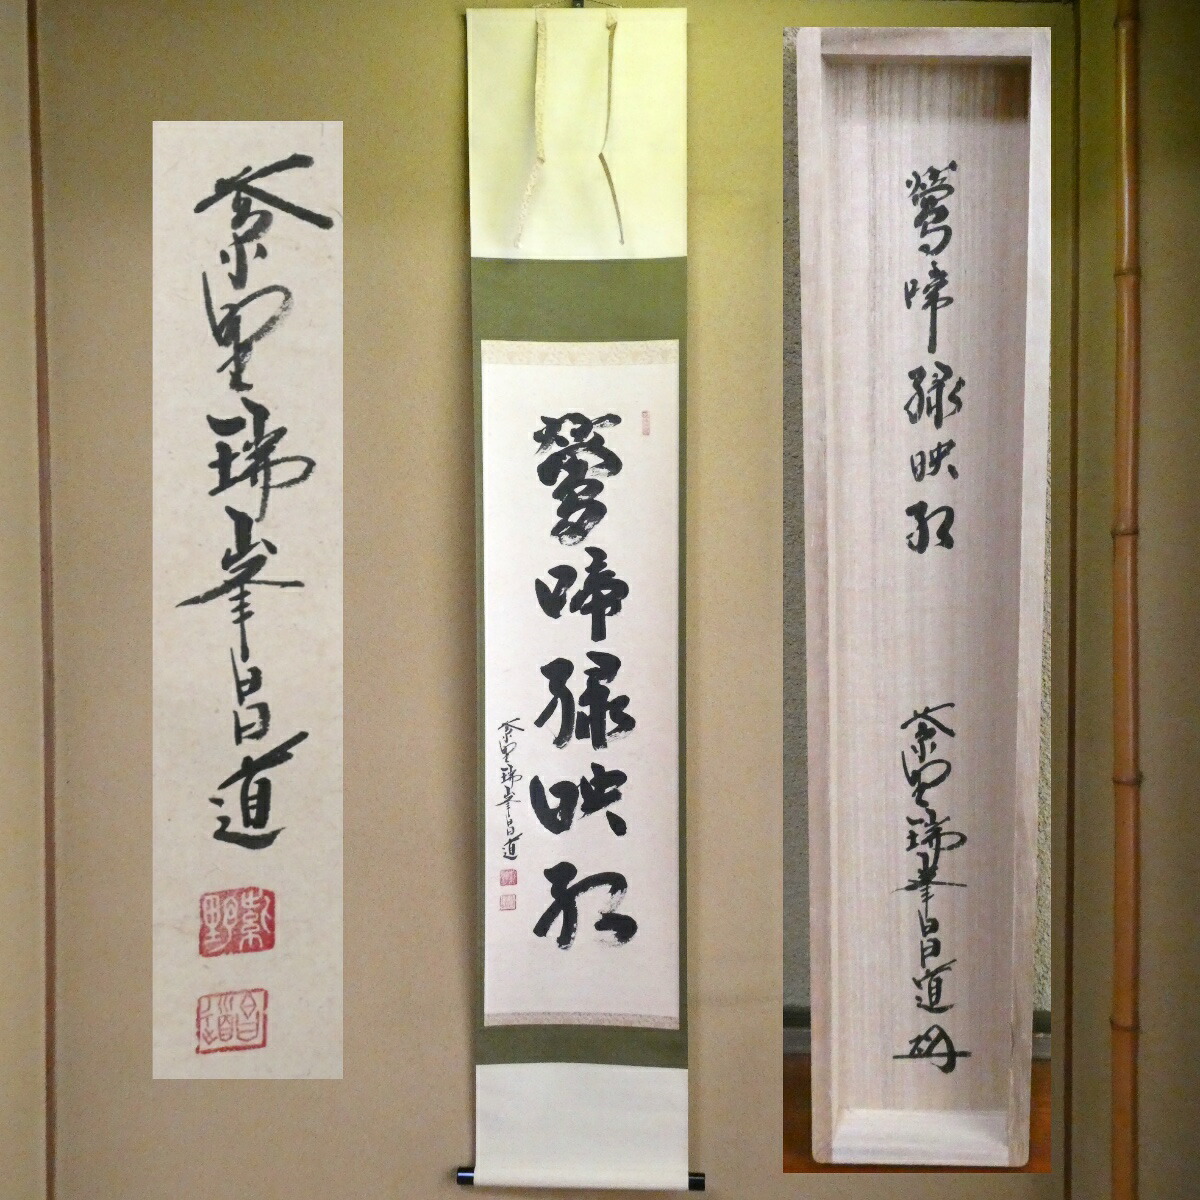 紫野瑞峯昌道
紫野
昌道
鶯啼緑映紅
紫野瑞峯昌道
鶯啼緑映紅
紫野瑞峯昌道